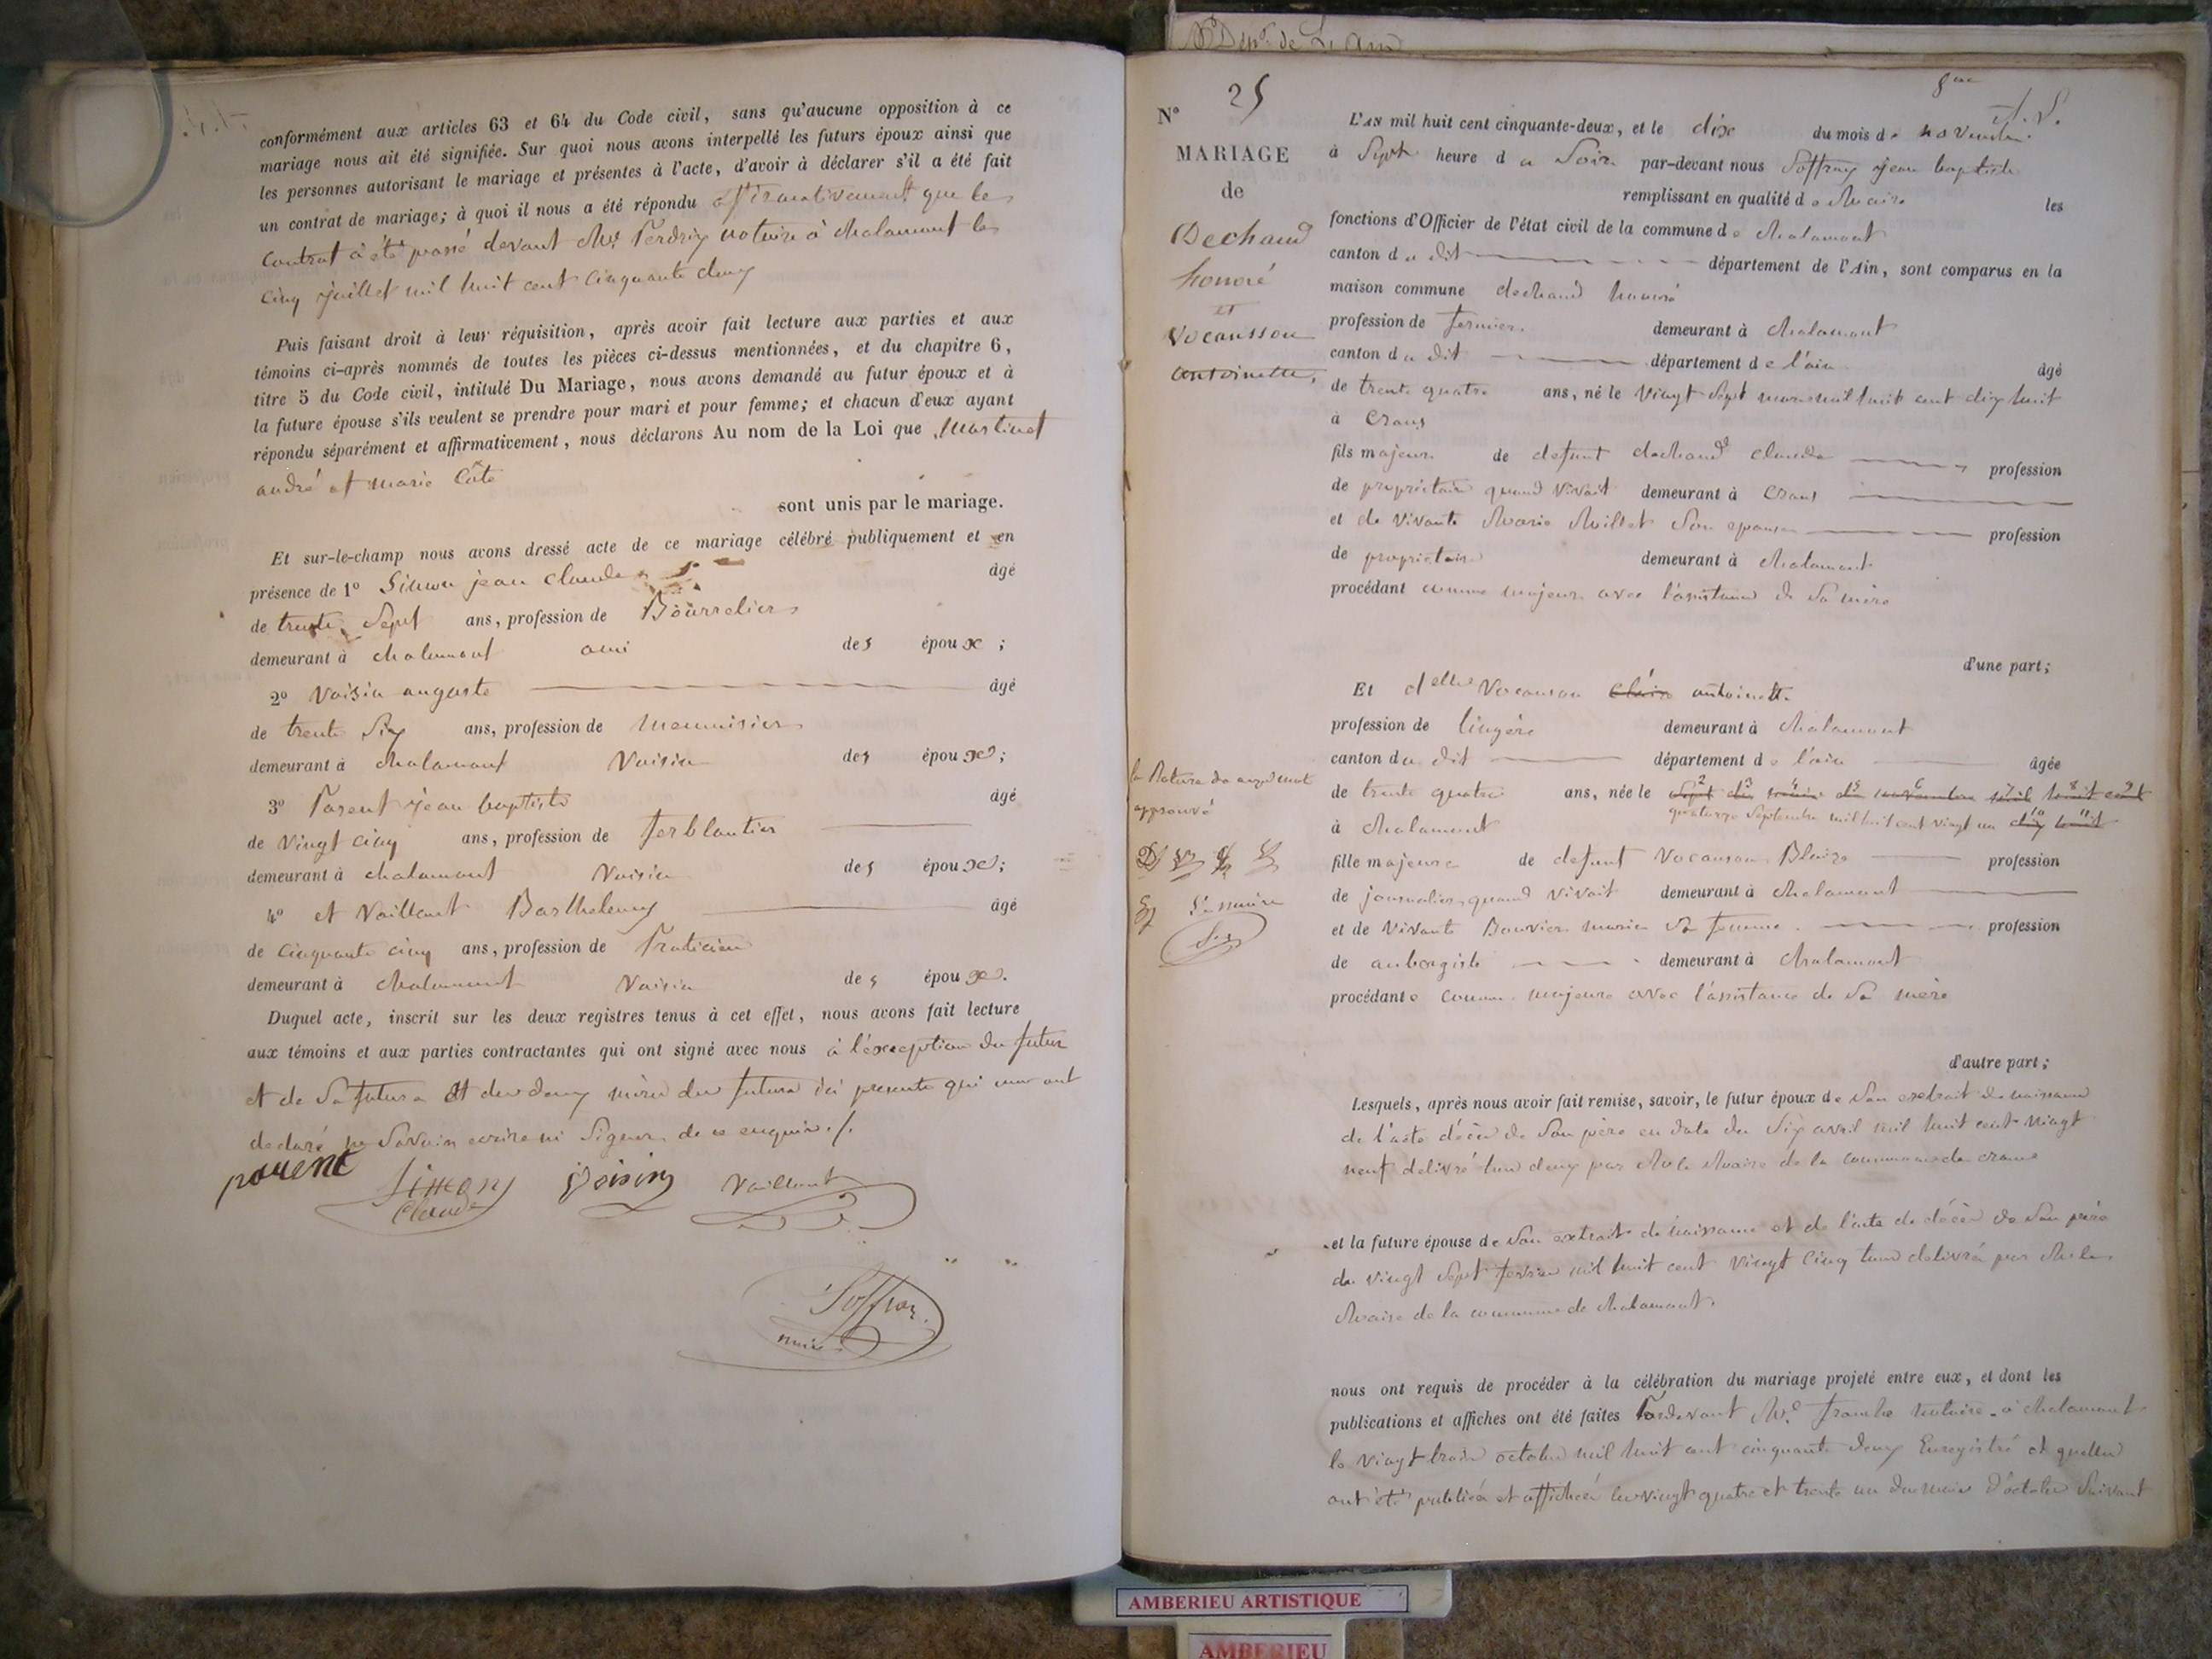 conformément aux articles 63 et 64 du Code civil, sans qu'aucune opposition à ce
mariage nous ait été signifiée. Sur quoi nous avons interpellé les futurs époux ainsi que
les personnes autorisant le mariage et présentes à l'acte, d'avoir à déclarer s'il a été fait
un contrat de mariage; à quoi il nous a été répondu affirmativement que le
contrat à été passé devant Me Perdrix notaire à chalamont le
cinq juillet mil huit cent cinquante deux
Puis faisant droit à leur réquisition, après avoir fait lecture aux parties et aux
témoins ci-après nommés de toutes les pièces ci-dessus mentionnées, et du chapitre 6,
titre 5 du Code civil, intitulé Du Mariage, nous avons demandé au futur époux et à
la future épouse s'ils veulent se prendre pour mari et pour femme; et chacun d'eux ayant
répondu séparément et affirmativement, nous déclarons Au nom de la Loi que Martinet
andré et marie Côte
sont unis par le mariage.
Et sur-le-champ nous avons dressé acte de ce mariage célébré publiquement et en
présence de 1° Simon jean claude âgé
de trente Sept ans, profession de Bourrelier
demeurant à chalamont ami des époux ;
2° Voisin auguste âgé
de trente Six ans, profession de menuisier
demeurant à chalamont Voisin des époux ;
3° Parent jean baptiste âgé
de Vingt cinq ans, profession de ferblantier
demeurant à chalamont Voisin des époux ;
4° et Vaillant Barthelemy âgé
de cinquante cinq ans, profession de Praticien
demeurant à chalamont Voisin des époux.
Duquel acte, inscrit sur les deux registres tenus à cet effet, nous avons fait lecture
aux témoins et aux parties contractantes qui ont signé avec nous à l'éxception du futur
et de Sa future et des deux mères des futurs ici presente qui nous ont
declaré ne Savoir ecrire ni Signer de ce enquis ./.
parent Simon Claude Voisin Vaillant
Soffray
maire
Dept de L'Ain
8me
N° 25
MARIAGE
de
Dechaud
honoré
et
Vocansson
antoinette.
L'AN mil huit cent cinquante-deux, et le dix du mois de novembre
à Sept heure du Soir par-devant nous Soffray jean baptiste
remplissant en qualité de Maire les
fonctions d'Officier de l'état civil de la commune de chalamont
canton du dit département de l'Ain, sont comparus en la
maison commune dechaud honoré
profession de fermier demeurant à chalamont
canton du dit département de l'ain âgé
de trente quatre ans, né le Vingt Sept mars mil huit cent dix huit
à Crans
fils majeur de defunt dechaud claude profession
de propriétaire quand vivait demeurant à Crans
et de vivante Marie Millet Son epouse profession
de propriétaire demeurant à chalamont
procédant comme majeur avec l'assistance de Sa mère
d'une part;
Et delle Vocanson Claire antoinette
profession de lingère demeurant à chalamont
canton du dit département de l'ain âgée
de trente quatre ans, née le Sept du mois de novembre mil huit cent
quatorze Septembre mil huit cent vingt un dix huit
à chalamont
fille majeure de defunt Vocanson Blaise profession
de journalier quand vivait demeurant à chalamont
et de vivante Bouvier marie Sa femme profession
de aubergiste demeurant à chalamont
procédant e comme majeure avec l'assistance de Sa mère
d'autre part;
la Rature de onze mot
approuvé
Le maire
Lesquels, après nous avoir fait remise, savoir, le futur époux de Son extrait de naissance
de l'acte décès de Son père en date du Six avril mil huit cent vingt
neuf delivré tous deux par Mr le Maire de la commune de crans
et la future épouse de Son extrait de naissance et de l'acte de décès de Son père
du vingt Sept fevrier mil huit cent vingt cinq tous delivrés par Mr le
Maire de la commune de chalamont.
nous ont requis de procéder à la célébration du mariage projeté entre eux, et dont les
publications et affiches ont été faites Pardevant Me notaire à chalamont
le vingt trois octobre mil huit cent cinquante deux Enregistré et quelles
ont été publiées et affichées les vingt quatre et trente un du mois d'octobre Suivant
AMBERIEU ARTISTIQUE
AMBERIEU